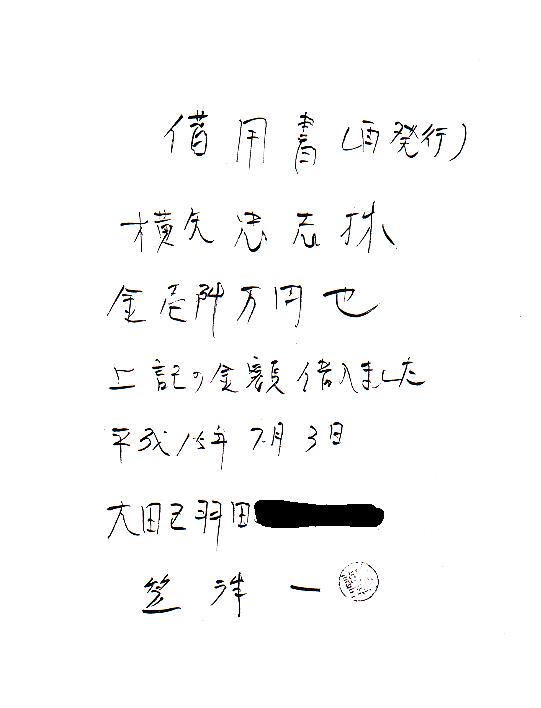 借用書(再発行)
横矢忠志様
金壱阡万円也
上記の金額借入ました
平成15年7月3日
大田区羽田
笠洋一